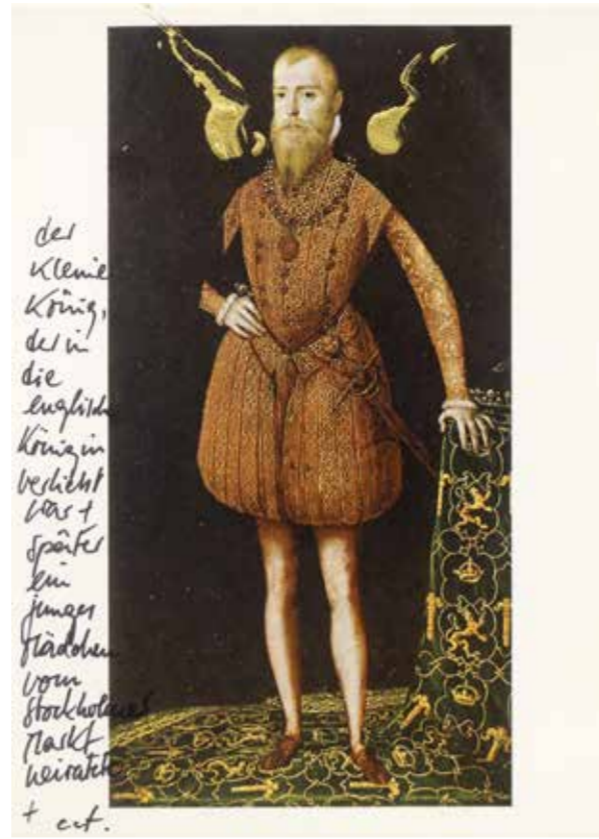 der
kleine
König,
der in
die
englische
Königin
verliebt
war +
später
ein
junges
Mädchen
vom
Stockholmer
Markt
heiratete
+ ect.